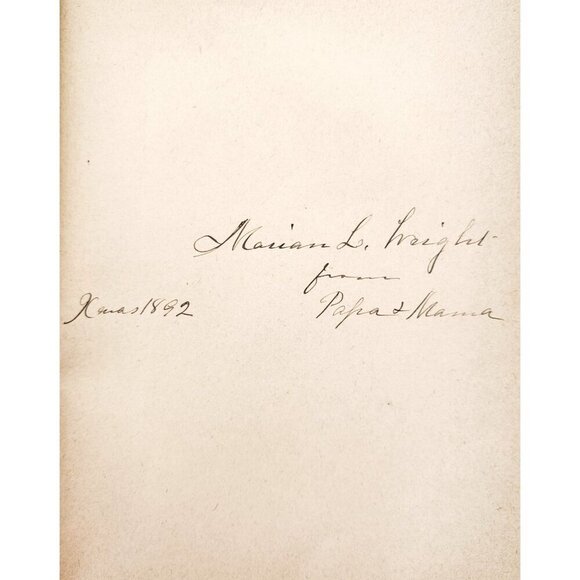 Marian L. Wright
from
Xmas 1892
Papa & Mama